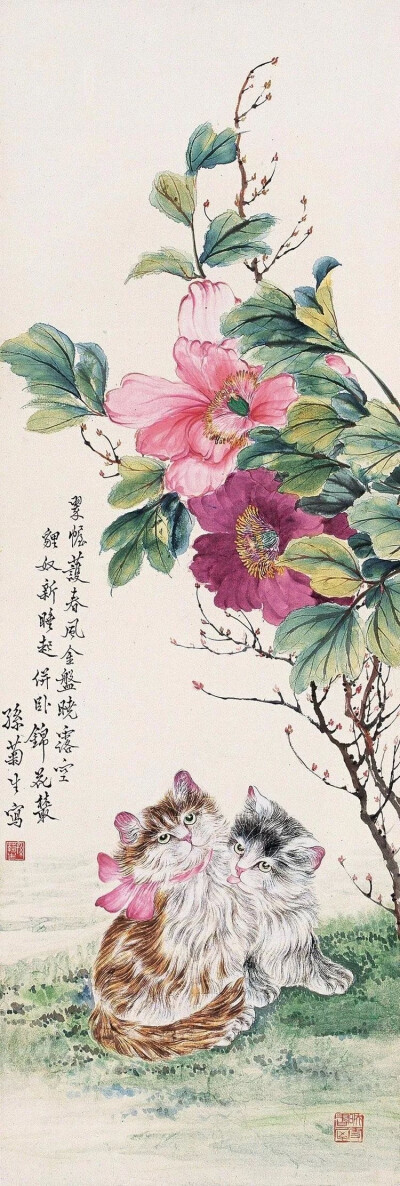 翠幄護春風金盤曉露空
貍奴新睡起併臥錦花叢
孫菊生寫